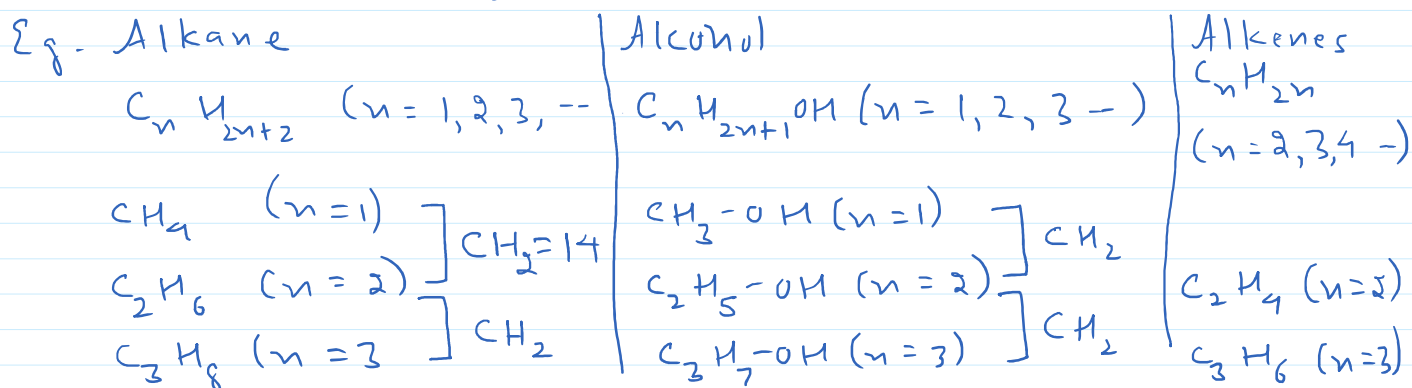 Eg. Alkane
CnH2n+2 (n = 1, 2, 3, --
CH4 (n = 1)
C2H6 (n = 2)
C3H8 (n = 3
] CH2 = 14
] CH2
Alcohol
CnH2n+1OH (n = 1, 2, 3 -)
CH3-OH (n = 1)
C2H5-OH (n = 2)
C3H7-OH (n = 3)
] CH2
] CH2
Alkenes
CnH2n
(n = 2, 3, 4 -)
C2H4 (n=2)
C3H6 (n=3)